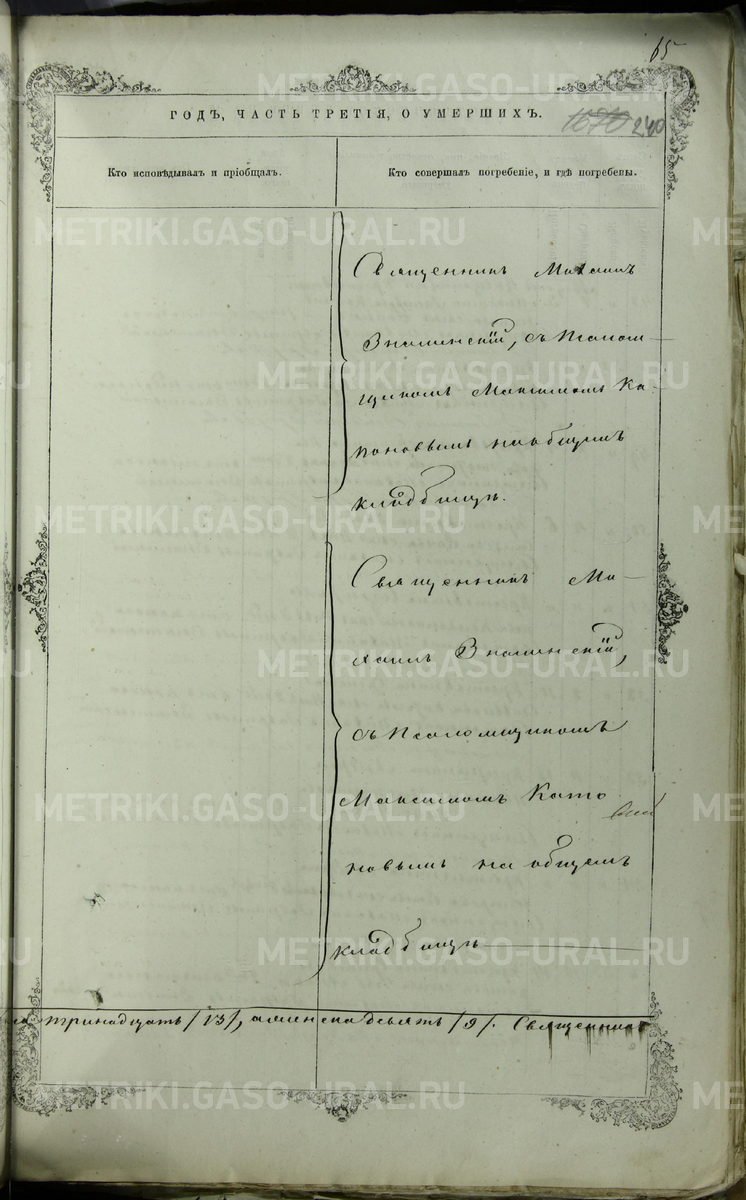 65
ГОДЪ, ЧАСТЬ ТРЕТІЯ, О УМЕРШИХЪ.
240
Кто исповѣдывалъ и пріобщалъ.
Кто совершалъ погребеніе, и гдѣ погребены.
Священникъ Михаилъ
Знаменскій, съ Псалом
щикомъ Максимомъ Ка
поновымъ на общемъ
кладбищѣ.
Священникъ Ми
хаилъ Знаменскій,
съ Псаломщикомъ
Максимомъ Капо
новымъ на общемъ
кладбищѣ
тринадцать /13/, а женска девять /9/. Священникъ
METRIKI.GASO-URAL.RU